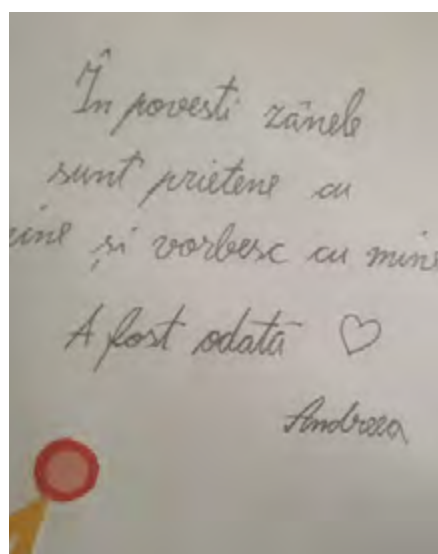 În povesti zânele
sunt prietene cu
mine și vorbesc cu mine
A fost odată ♡
Andreea